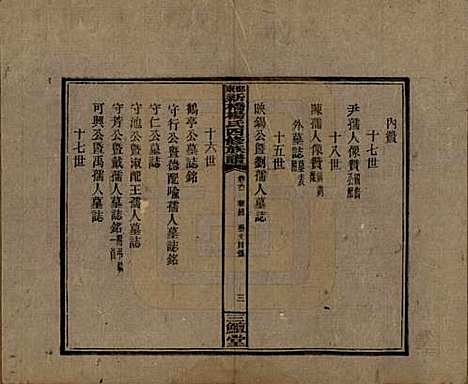 內費
十七世
尹孺人像贊
十八世
陳孺人像贊
外墓誌
十五世
映錫公暨劉孺人墓誌
新橋楊氏四修族譜
三
三鱣堂
十六世
鶴亭公墓誌銘
守行公暨德配喻孺人墓誌銘
守仁公墓誌
守池公暨淑配王孺人墓誌
守芳公暨戴孺人墓誌銘
可興公暨禹孺人墓誌
十七世